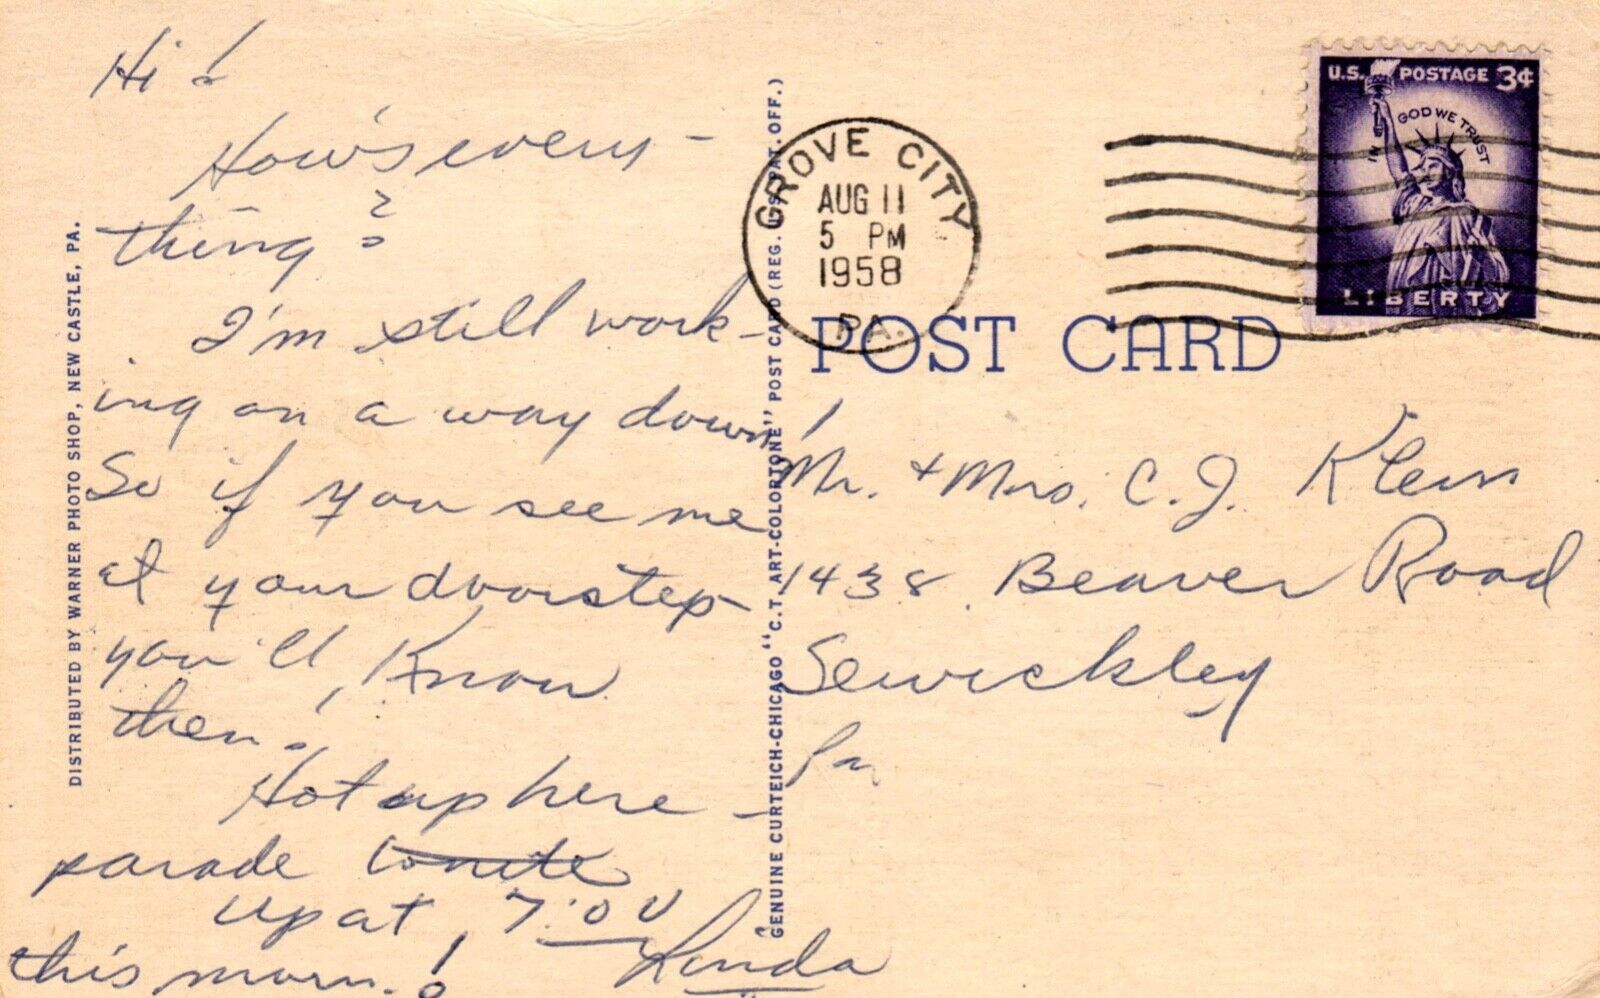 Hi!
How's every-
thing?
I'm still work-
ing on a way down!
So if you see me
at your doorstep-
you'll know
then!
Hot up here -
parade tonite
Up at 7:00
this morn.!
Linda
DISTRIBUTED BY WARNER PHOTO SHOP, NEW CASTLE, PA.
GENUINE CURTEICH-CHICAGO "C.T. ART-COLORTONE" POST CARD (REG. U.S. PAT. OFF.)
GROVE CITY
AUG 11
5 PM
1958
PA.
U.S. POSTAGE 3¢
IN GOD WE TRUST
LIBERTY
POST CARD
Mr. + Mrs. C.J. Klein
1438 Beaver Road
Sewickley
Pa